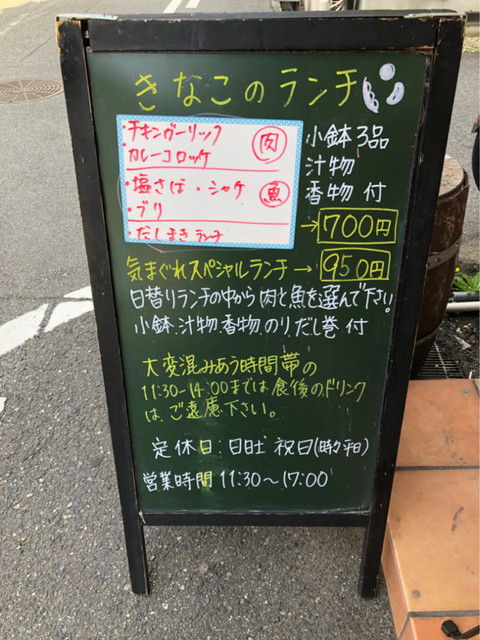 きなこのランチ
・チキンガーリック
・カレーコロッケ
肉
・塩さば・シャケ
・ブリ
魚
・だしまきランチ
小鉢3品
汁物
香物 付
→700円
気まぐれスペシャルランチ→950円
日替りランチの中から肉と魚を選んで下さい!
小鉢、汁物、香物、のり、だし巻 付
大変混みあう時間帯の
11:30-14:00までは食後のドリンク
は、ご遠慮下さい。
定休日:日祝日(時々平日)
営業時間 11:30～17:00